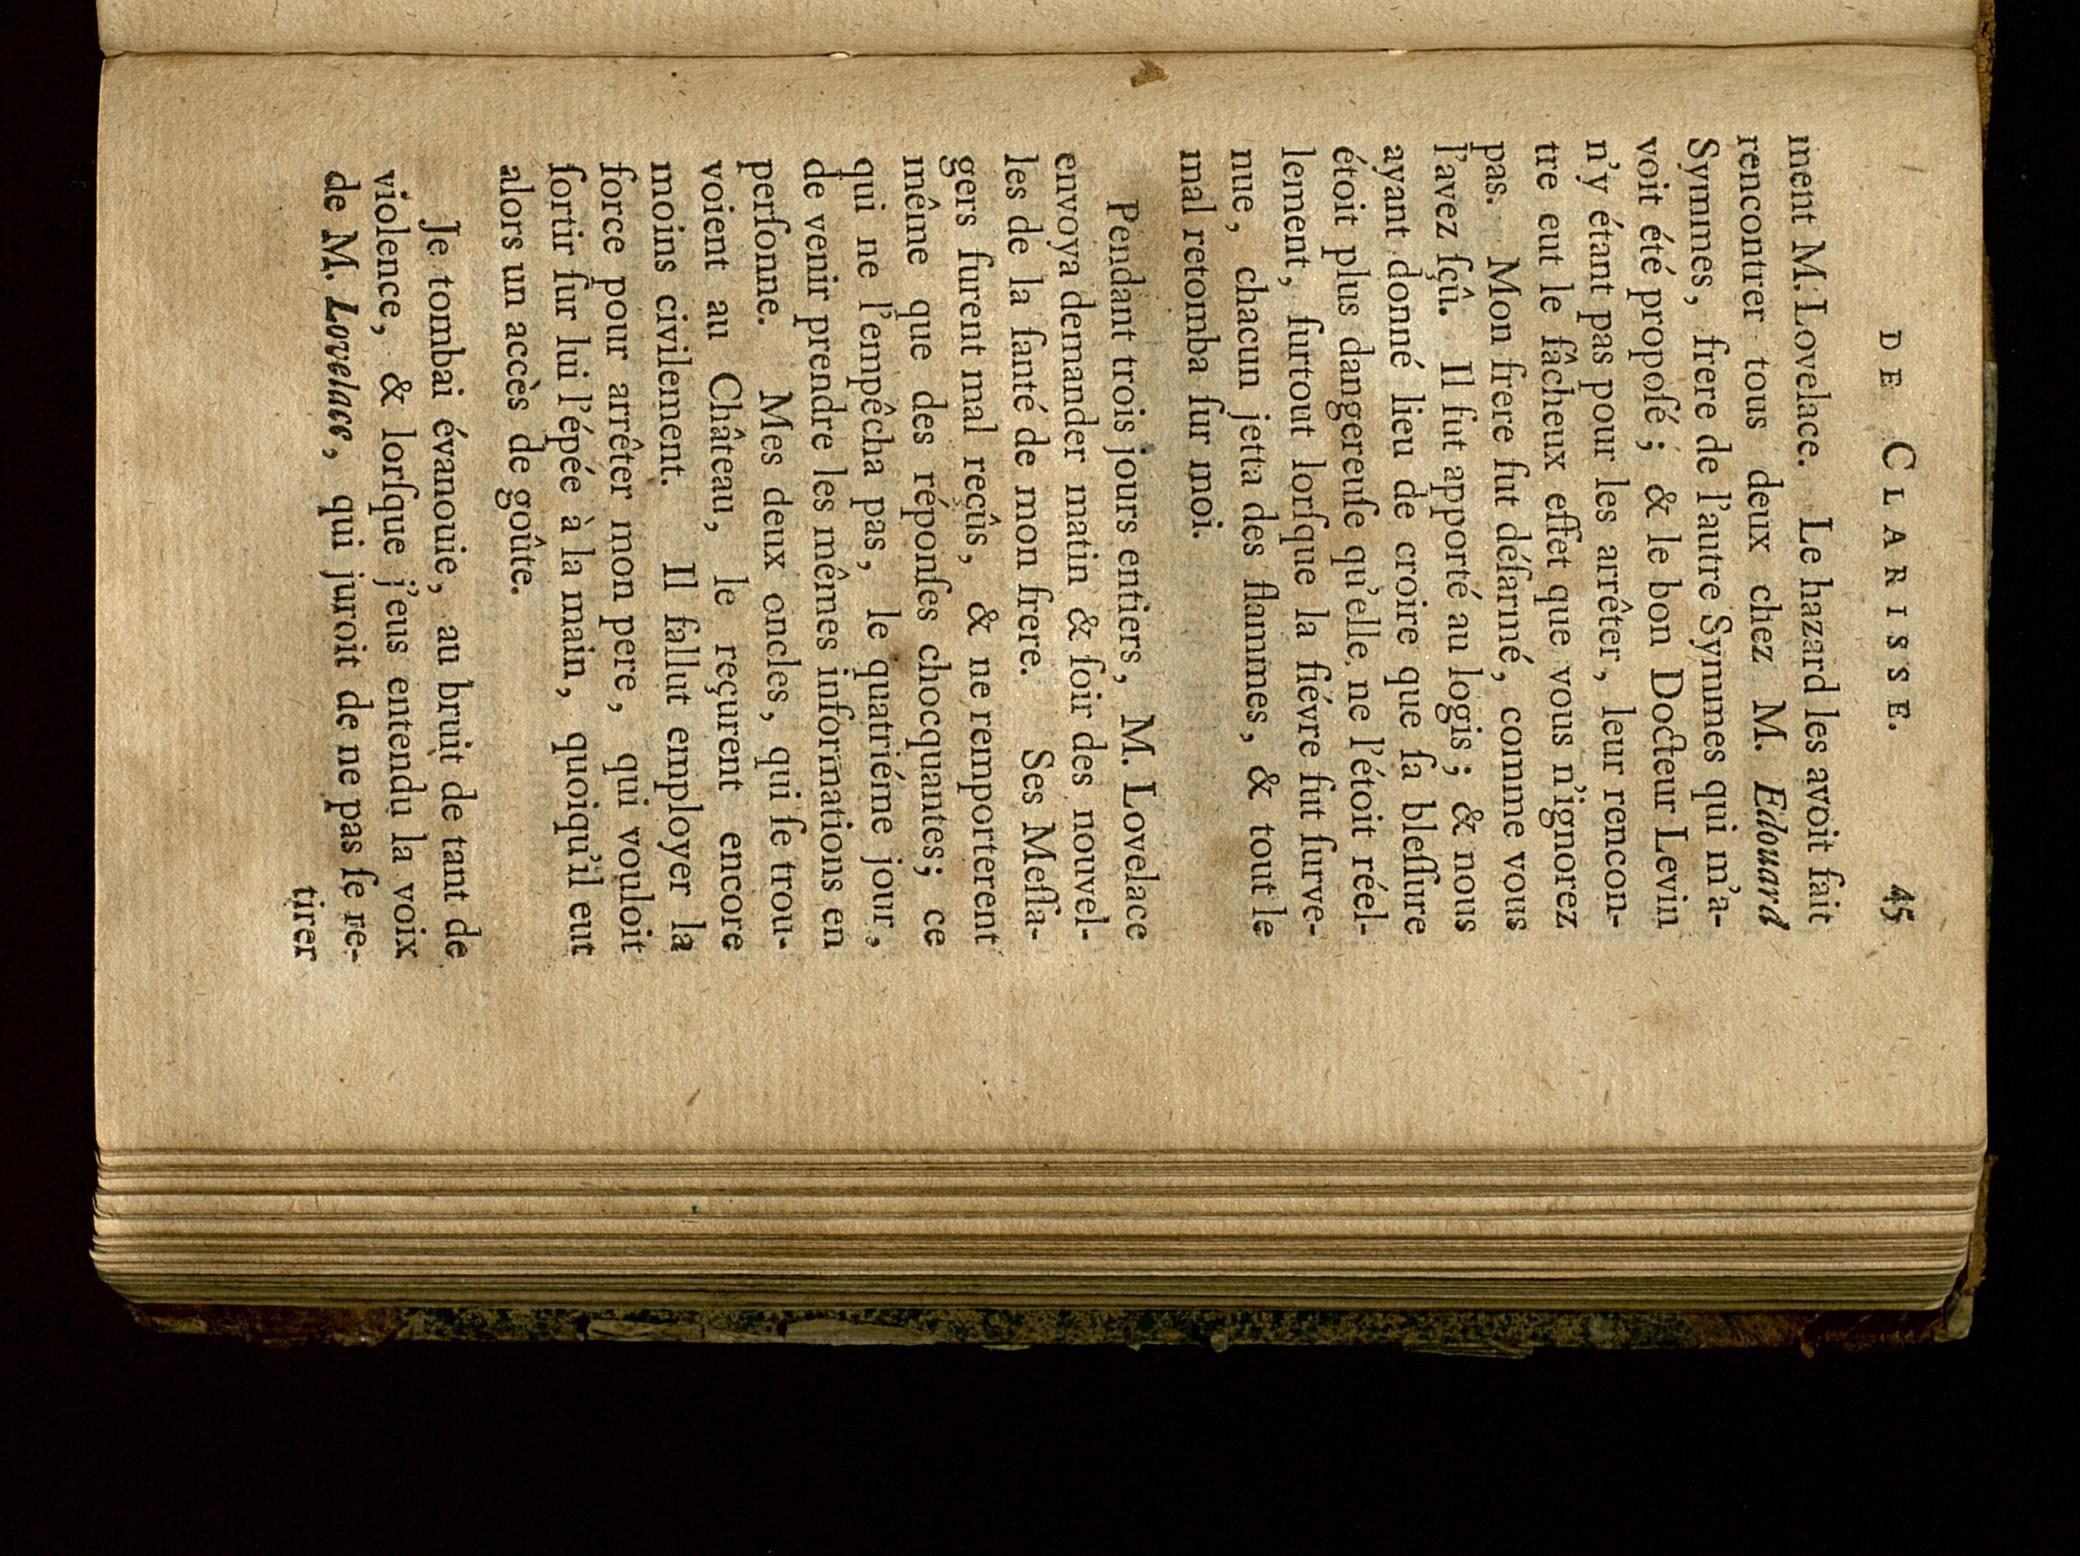 DE CLARISSE. 45
ment M. Lovelace. Le hazard les avoit fait
rencontrer tous deux chez M. Edouard
Symmes, frere de l'autre Symmes qui m'a-
voit été propoſé; & le bon Docteur Levin
n'y étant pas pour les arrêter, leur rencon-
tre eut le fâcheux effet que vous n'ignorez
pas. Mon frere fut déſarmé, comme vous
l'avez ſçû. Il fut apporté au logis; & nous
ayant donné lieu de croire que ſa bleſſure
étoit plus dangereuſe qu'elle ne l'étoit réel-
lement, ſurtout lorſque la fiévre fut ſurve-
nue, chacun jetta des flammes, & tout le
mal retomba ſur moi.
Pendant trois jours entiers, M. Lovelace
envoya demander matin & ſoir des nouvel-
les de la ſanté de mon frere. Ses Meſſa-
gers furent mal reçûs, & ne remporterent
même que des réponſes chocquantes; ce
qui ne l'empêcha pas, le quatriéme jour,
de venir prendre les mêmes informations en
perſonne. Mes deux oncles, qui ſe trou-
voient au Château, le reçurent encore
moins civilement. Il fallut employer la
force pour arrêter mon pere, qui vouloit
ſortir ſur lui l'épée à la main, quoiqu'il eut
alors un accès de goûte.
Je tombai évanouie, au bruit de tant de
violence, & lorſque j'eus entendu la voix
de M. Lovelace, qui juroit de ne pas ſe re-
tirer